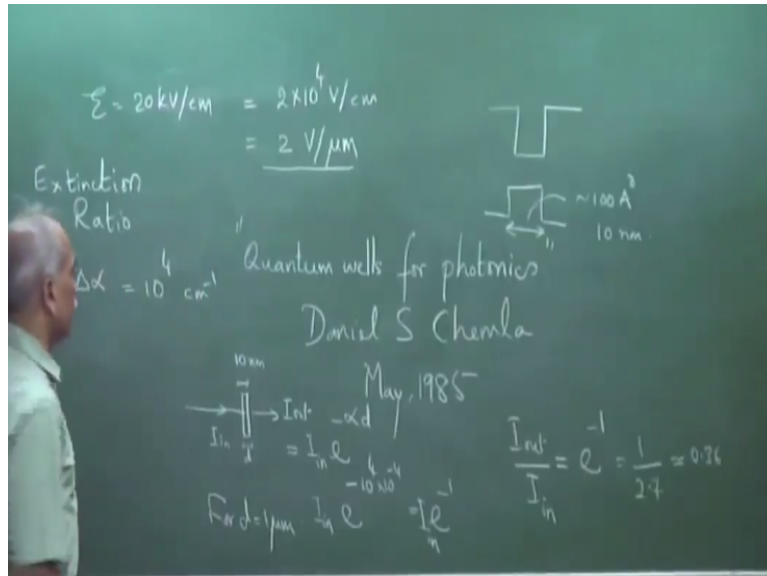 ξ = 20kV/cm = 2×10⁴ V/cm
= 2 V/μm
~100 A°
10 nm.
Extinction
Ratio
Δα = 10⁴ cm⁻¹
"Quantum wells for photonics"
Daniel S Chemla
May, 1985
10 nm
I_in
d
Iout = I_in e^-αd
For d=1μm. I_in e^-10⁴×10⁻⁴ = I_in e⁻¹
Iout/I_in = e⁻¹ = 1/2.7 ≈ 0.36